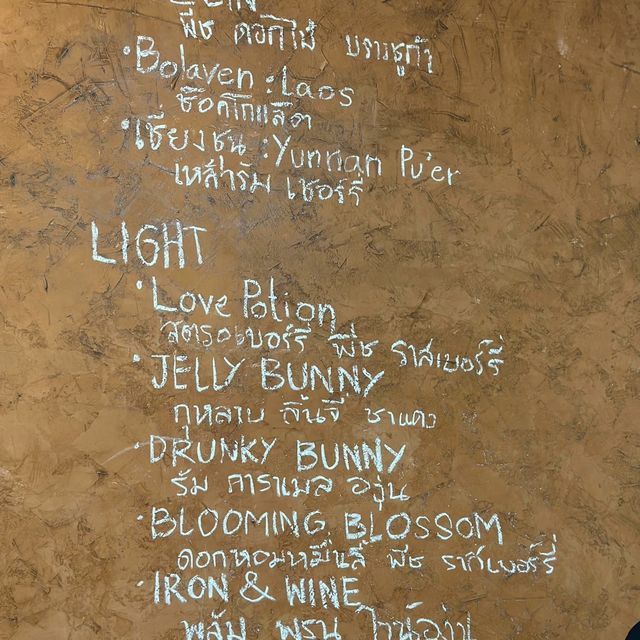 พีช ดอกไม้ บราวชูก้า
• Bolaven : Laos
ช็อกโกแลต
• เชียงชน : Yunnan Pu'er
เหล้ารัม เชอร์รี่
LIGHT
• Love Potion
สตรอเบอร์รี่ พีช ราสเบอร์รี่
• JELLY BUNNY
กุหลาบ ลิ้นจี่ ชาแดง
• DRUNKY BUNNY
รัม คาราเมล องุ่น
• BLOOMING BLOSSOM
ดอกหอมหมื่นลี้ พีช ราสเบอร์รี่
• IRON & WINE
พลัม พรุน ไวน์องุ่น